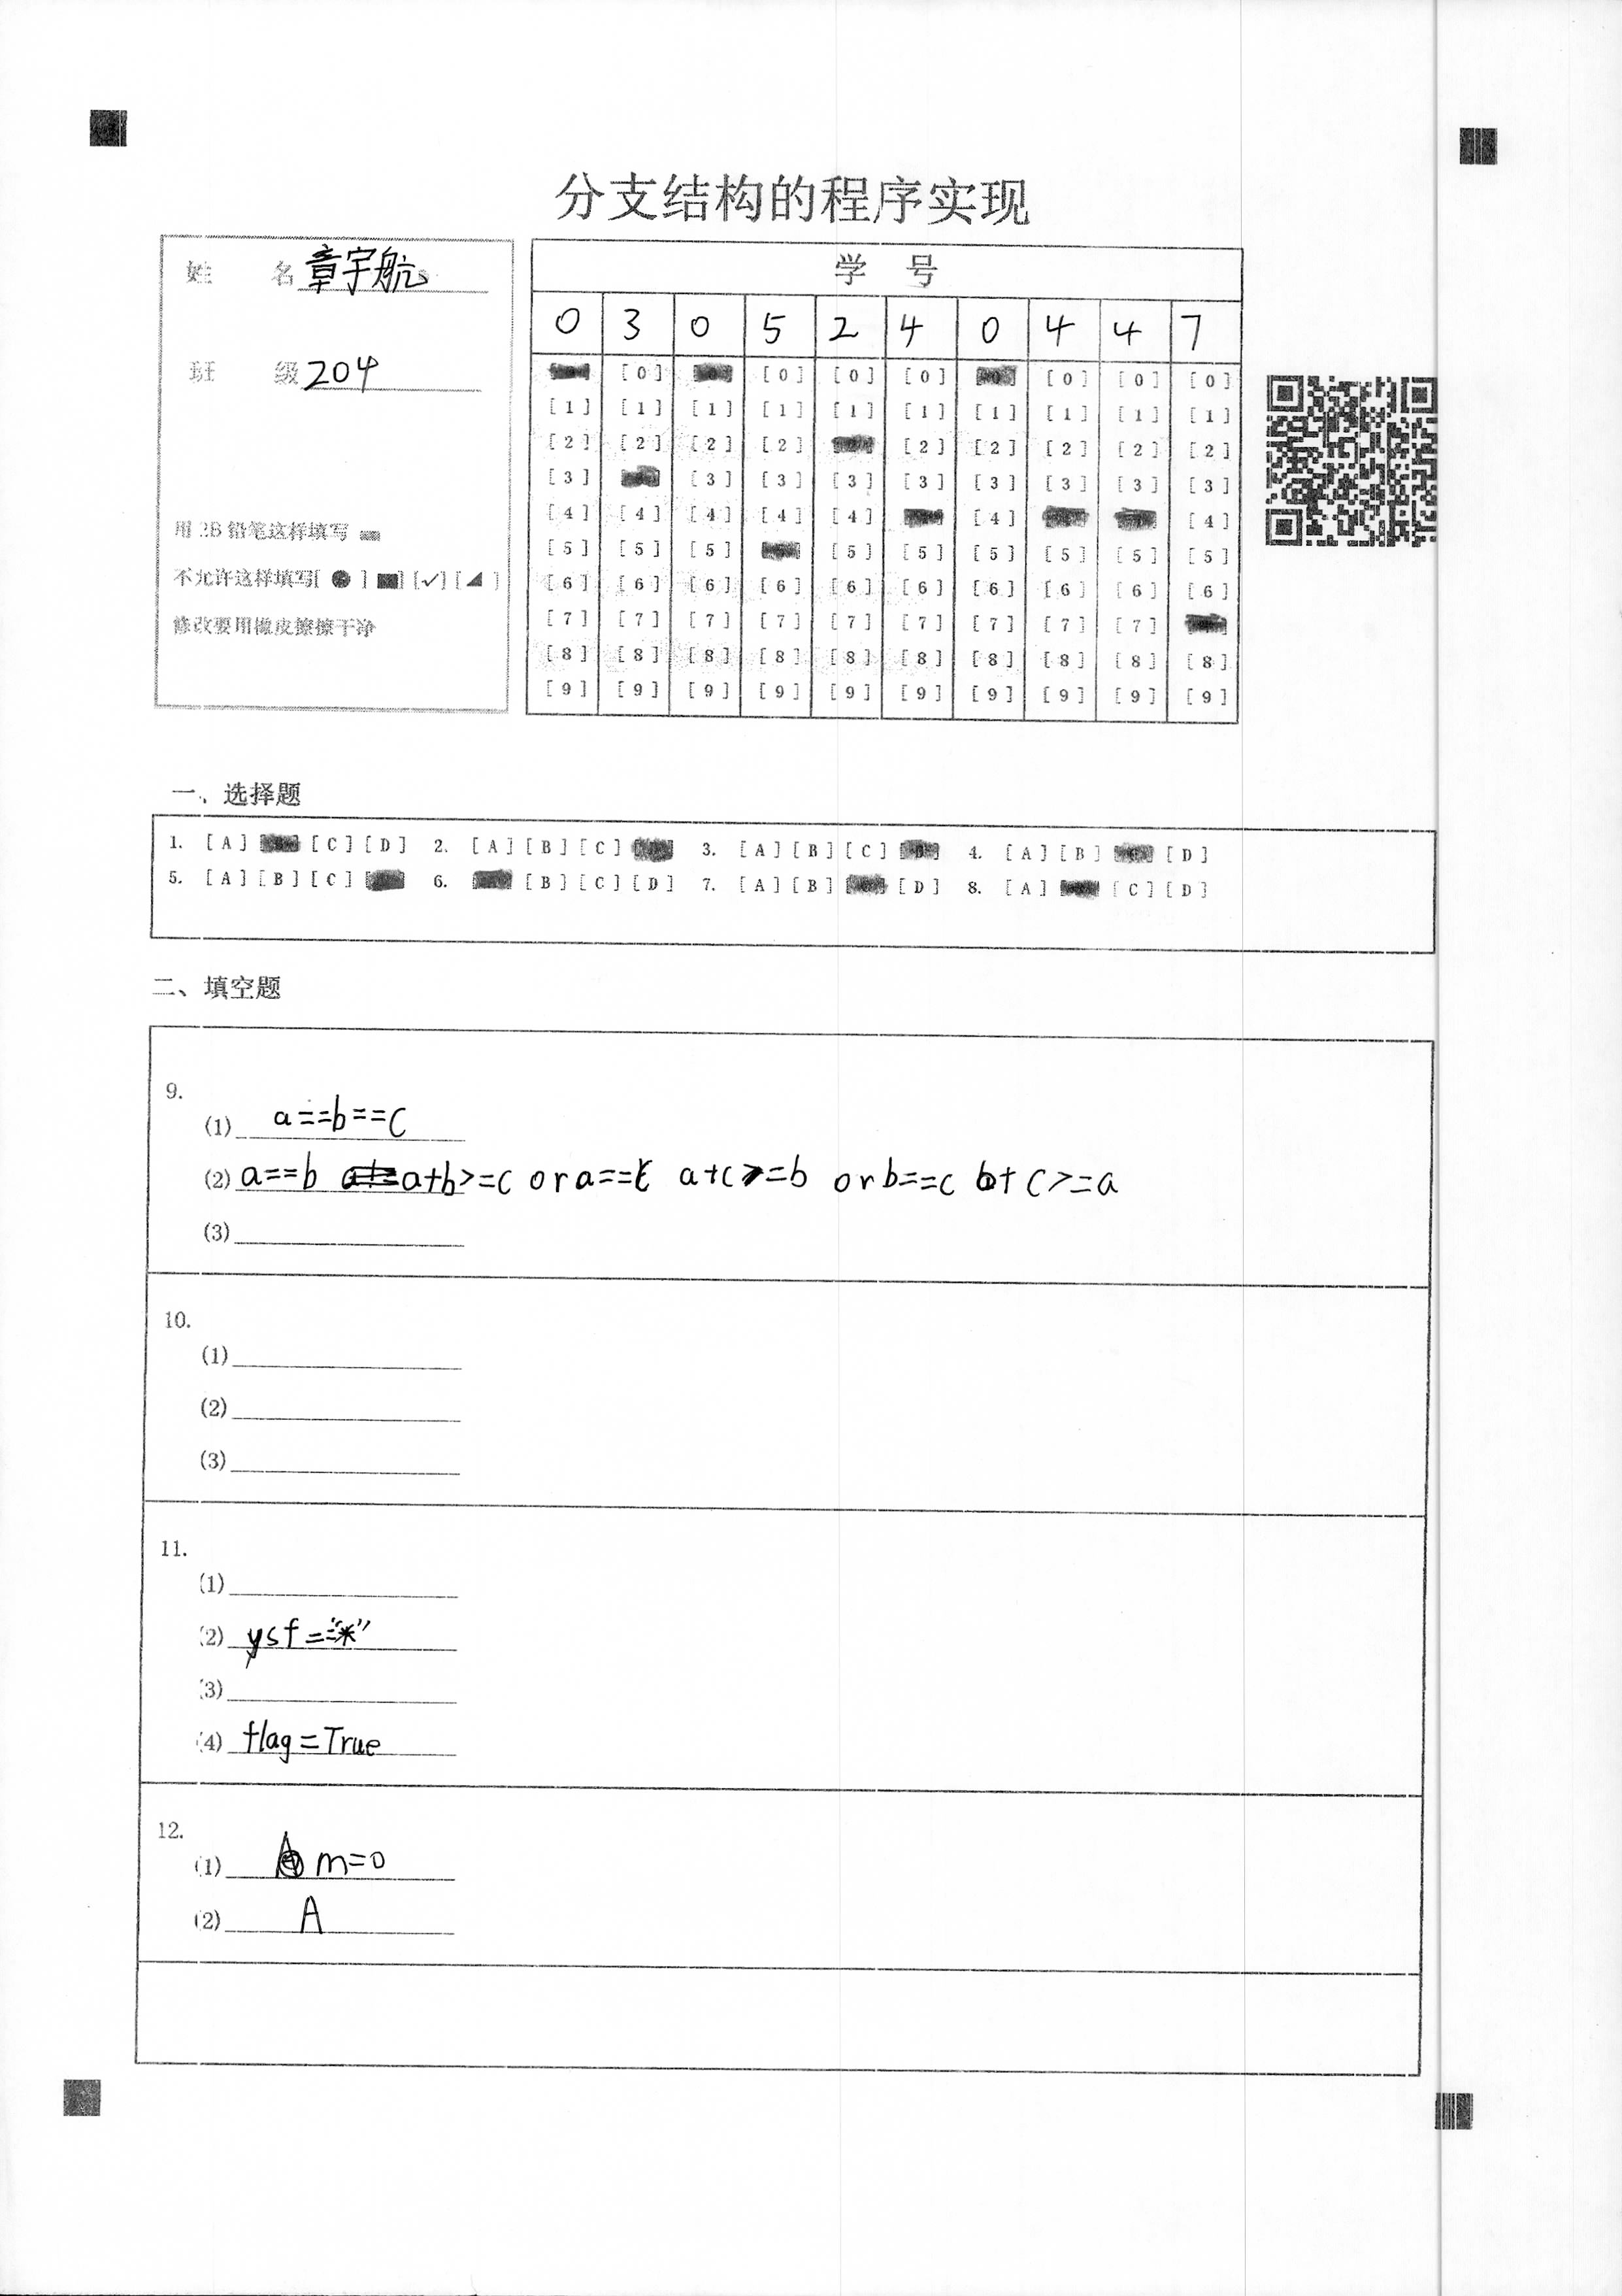 分支结构的程序实现
姓 名 章宇航
班 级 204
用 2B 铅笔这样填写
不允许这样填写[ ● ] ■] [✓] [◢ ]
修改要用橡皮擦擦干净
学 号
0 3 0 5 2 4 0 4 4 7
[0] [0] [0] [0] [0] [0] [0]
[1] [1] [1] [1] [1] [1] [1] [1] [1] [1]
[2] [2] [2] [2] [2] [2] [2] [2] [2]
[3] [3] [3] [3] [3] [3] [3] [3] [3]
[4] [4] [4] [4] [4] [4] [4]
[5] [5] [5] [5] [5] [5] [5] [5] [5]
[6] [6] [6] [6] [6] [6] [6] [6] [6] [6]
[7] [7] [7] [7] [7] [7] [7] [7] [7]
[8] [8] [8] [8] [8] [8] [8] [8] [8] [8]
[9] [9] [9] [9] [9] [9] [9] [9] [9] [9]
一、选择题
1. [A] [C] [D] 2. [A] [B] [C] 3. [A] [B] [C] 4. [A] [B] [D]
5. [A] [B] [C] 6. [B] [C] [D] 7. [A] [B] [D] 8. [A] [C] [D]
二、填空题
9.
(1) a==b==c
(2) a==b a+b>=c or a==c a+c>=b or b==c b+c>=a
(3)
10.
(1)
(2)
(3)
11.
(1)
(2) ysf=="*"
(3)
(4) flag=True
12.
(1) m=0
(2) A